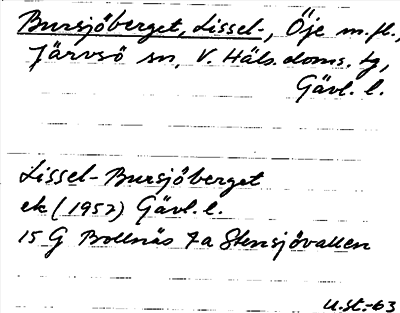 Bursjöberget, Lissel-, Öje m.fl.,
Järvsö sn, V. Häls. doms. tg,
Gävl. l.
Lissel-Bursjöberget
ek (1957) Gävl. l.
15 G Bollnäs 7a Stensjövallen
U.St.-63